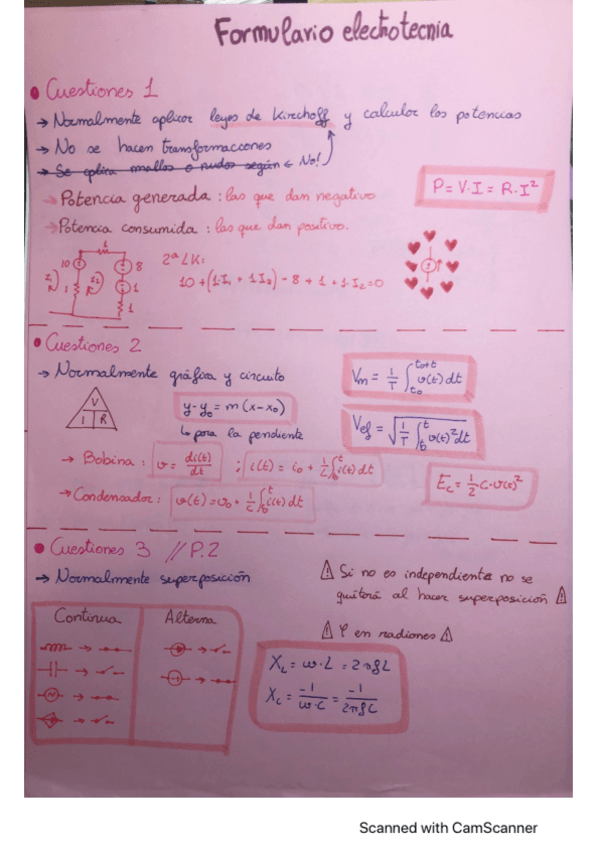 Formulario electrotecnia
• Cuestiones 1
→ Normalmente aplicar leyes de Kirchoff y calcular las potencias
→ No se hacen transformaciones
→ Se aplica mallas o nudos según ← No!
→ Potencia generada : las que dan negativo
P = V·I = R·I²
→ Potencia consumida : las que dan positivo.
1
10 8 2ª LK:
I₁ 1 I₂ 1 10 + (1·I₁ + 1I₂) - 8 + 1 + 1·I₂ = 0
1
• Cuestiones 2
→ Normalmente gráfica y circuito
Vm = 1/T ∫ v(t) dt
V I R
y - y₀ = m (x - x₀)
↳ para la pendiente
Vef = √(1/T ∫ v(t)² dt)
→ Bobina : v = di(t)/dt ; i(t) = i₀ + 1/L ∫ i(t) dt
→ Condensador : v(t) = v₀ + 1/C ∫ i(t) dt
Ec = 1/2 C·v(t)²
• Cuestiones 3 // P.2
→ Normalmente superposición
⚠ Si no es independiente no se
quitará al hacer superposición ⚠
Continua Alterna
⚠ φ en radianes ⚠
X_L = ω·L = 2πfL
X_c = -1/(ω·C) = -1/(2πfC)
Scanned with CamScanner